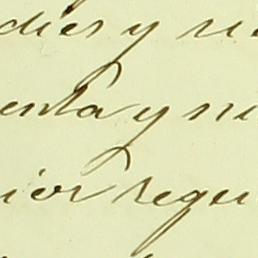 dies y nu
enta y nu
ior regu